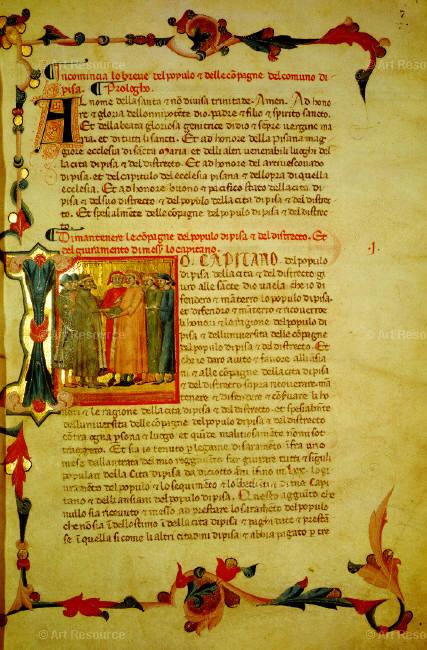 Incomincia lo breve del populo & delle cõpagne del comuno di
pisa. Prologho.
Al nome della santa & nõ divisa trinitade. Amen. Ad hono
re & gloria dell onnipotẽte dio. padre & filio & spirito sancto.
Et della beata gloriosa genitrice di dio & senpre vergine ma
ria. et di tutti li sancti. Et ad honore della pisana mag
giore ecclesia di sancta maria. et delli altri venerabili luoghi del
la cita di pisa & del distrecto. Et ad honore del arcivescovado
di pisa. et del capitulo del ecclesia pisana & dell opra di quella
ecclesia. Et ad honore & buono & pacifico stato della cita di
pisa & del suo distrecto & del populo della cita di pisa & del distrec
to. Et spesialmẽte delle cõpagne del populo di pisa & del distrec
to.
Di mantenere le cõpagne del populo di pisa & del distrecto. Et
del giuramento di mess lo capitano.
IO. CAPITANO. del populo
di pisa della cita & del distrecto giu
ro alle sancte dio che io di
fenderò & mãterrò lo populo di pisa.
et difendrò & mãterrò & ricoverrò
li honori & le ragione del populo di pi
sa & dell universita delle cõpagne
del populo di pisa & del distrecto. Et
che io darò aiuto & favore alli ansia
ni & alle cõpagne della cita di pisa
& del distrecto sopra ricoverare. mã
tenere & difendere & cõservare li ho
nori & le ragione della cita di pisa & del distrecto. et spesialmẽte
dell universita delle cõpagne del populo di pisa & del distrecto
cõtra ogna psona & luogo. et qui de malitiosamẽte nõ mi sot
traggerò. Et sia io tenuto p legame di saramẽto ĩfra uno
mese dall entrata del mio reggimẽto far giurare tutti & singuli
populari della Cita di pisa da diciotto anni ĩfino ĩ lxx. lo giu
ramẽto del populo & lo seguimẽto di me Capi
tano & delli ansiani del populo di pisa. Questo agiũto che
nullo sia ricevuto & messo ad prestare lo saramẽto del populo
che nõ sia ĩ dell estimo ĩ della cita di pisa & paghi date & prestãn
se ĩ quella si come li altri citadini di pisa & abbia pagato p tre
.I.
© Art Resource
© Art Resource
© Art Resource
© Art Resource